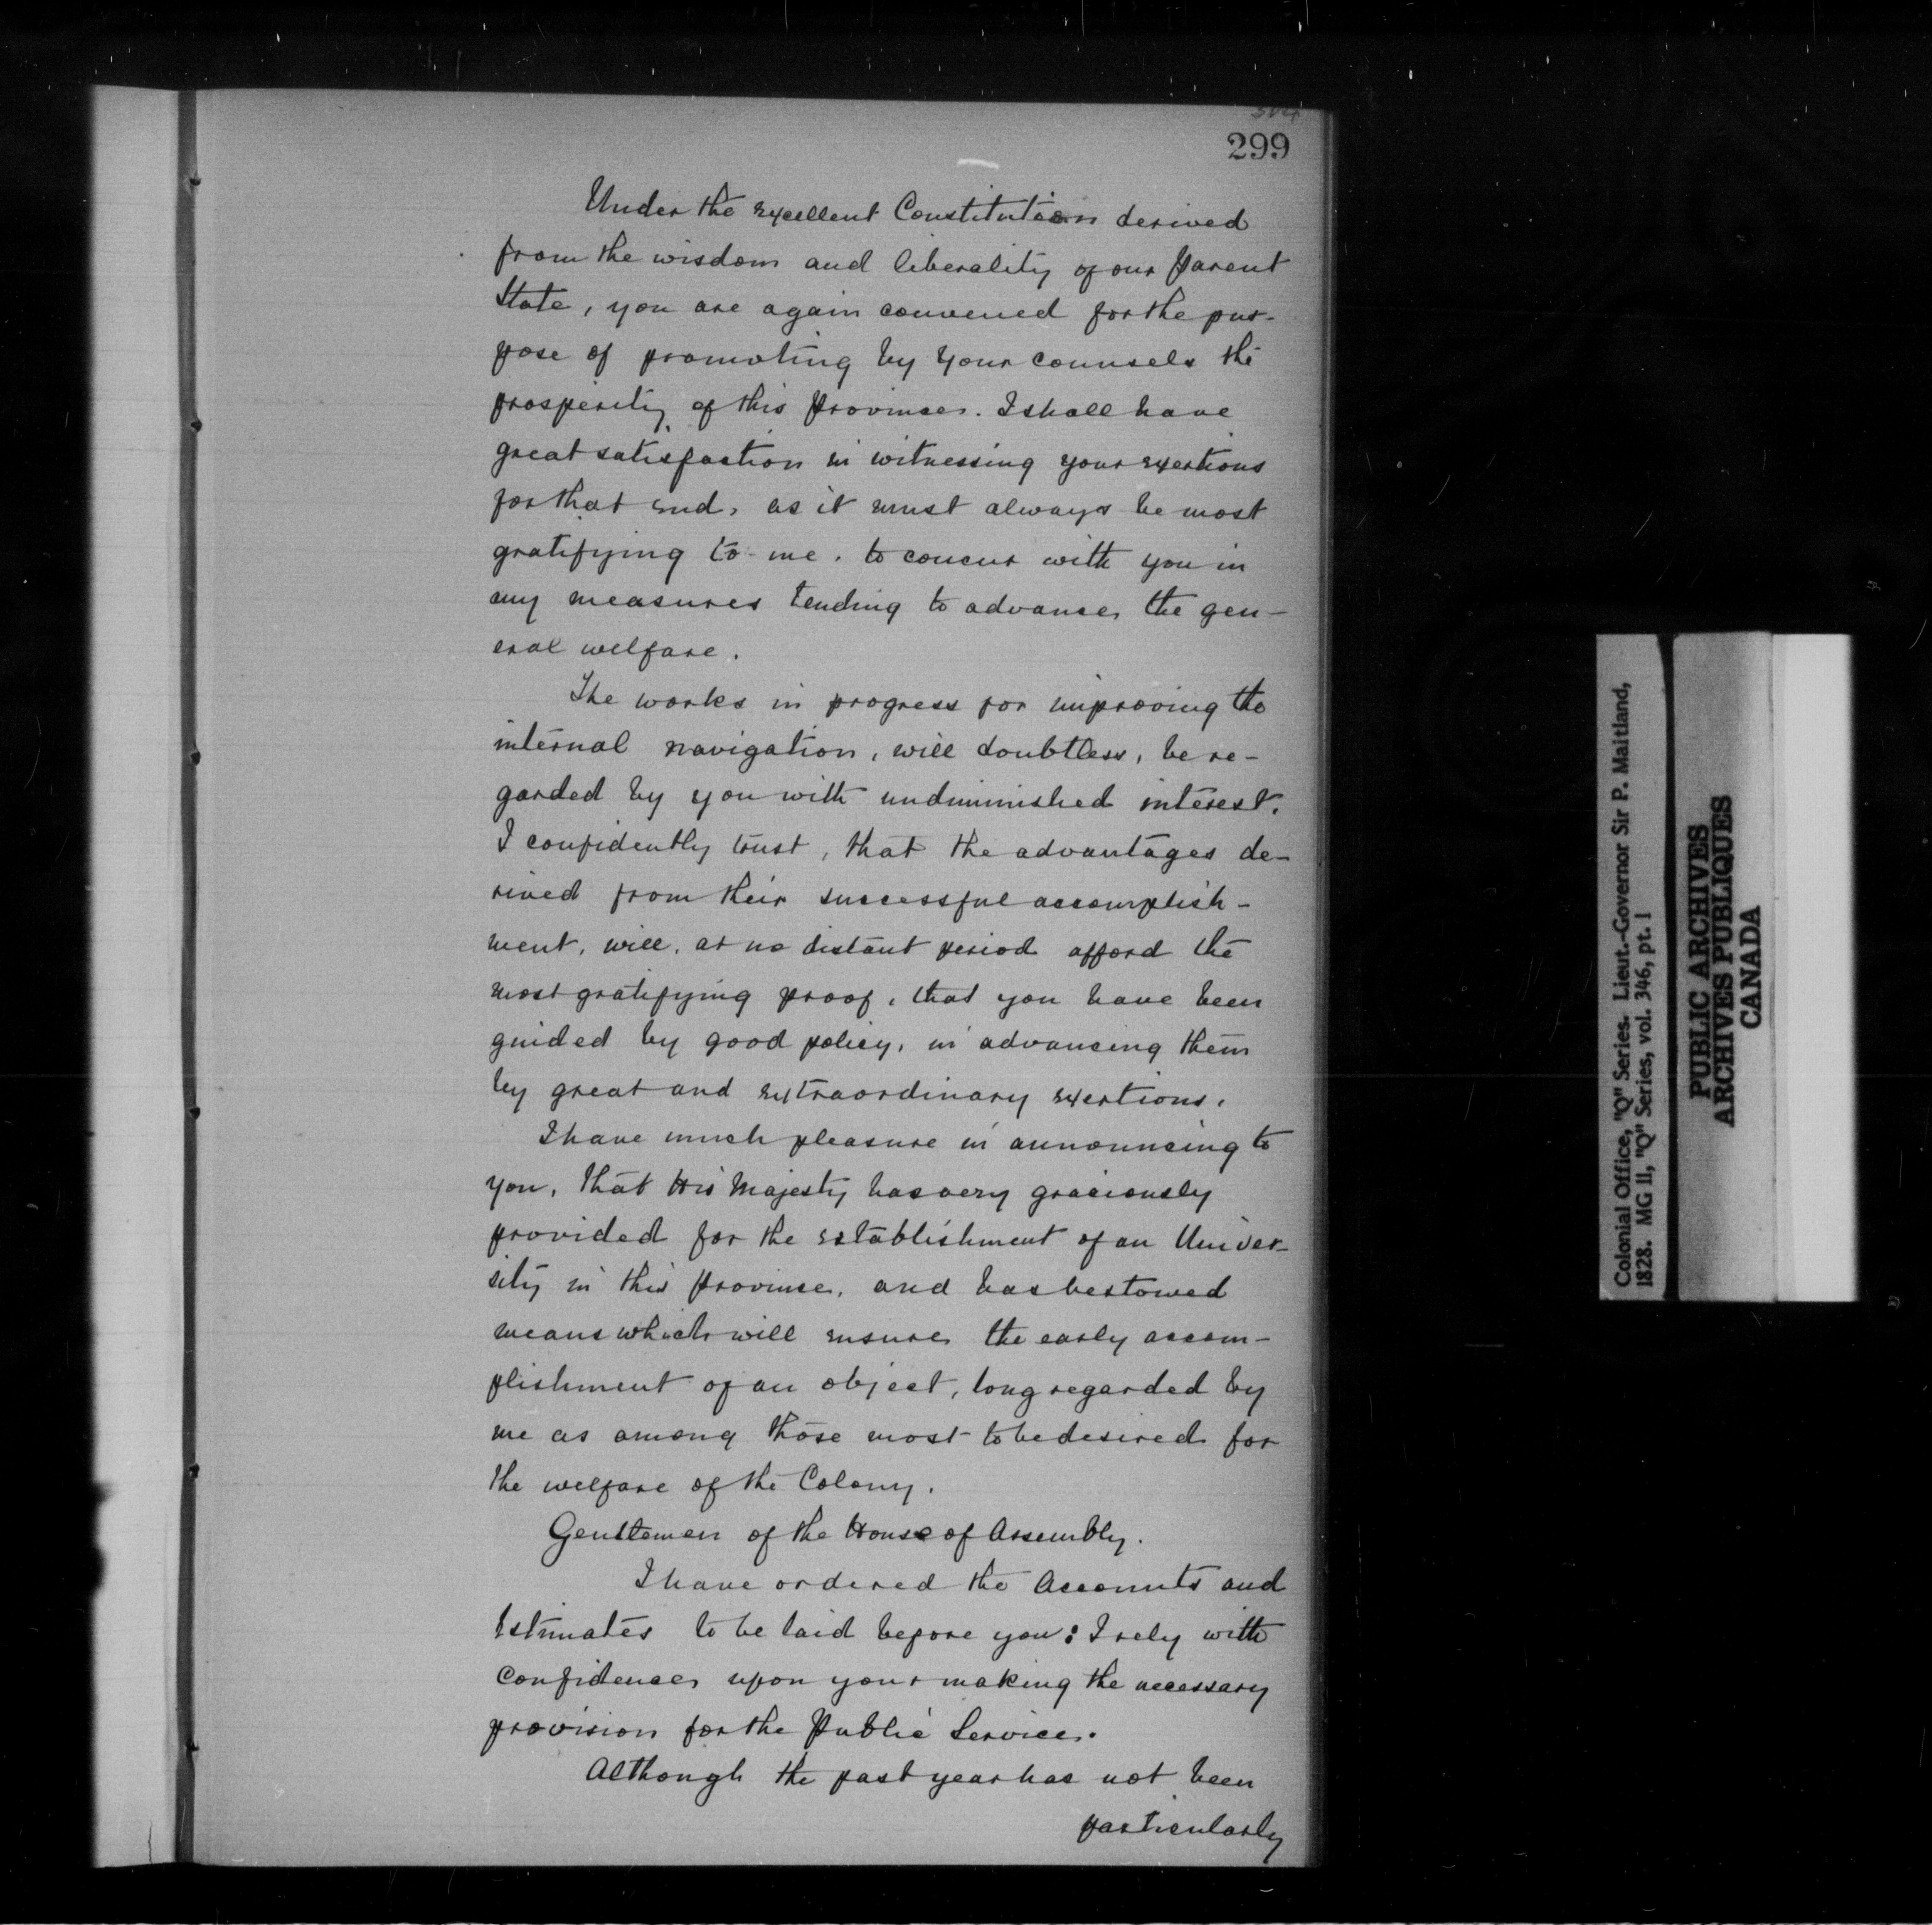 299
Under the excellent Constitution derived
from the wisdom and liberality of our Parent
State, you are again convened for the pur-
pose of promoting by your counsels the
prosperity of this Province. I shall have
great satisfaction in witnessing your exertions
for that end, as it must always be most
gratifying to me, to concur with you in
any measures tending to advance the gen-
eral welfare.
The works in progress for improving the
internal navigation, will doubtless, be re-
garded by you with undiminished interest.
I confidently trust, that the advantages de-
rived from their successful accomplish-
ment, will, at no distant period afford the
most gratifying proof, that you have been
guided by good policy, in advancing them
by great and extraordinary exertions.
I have much pleasure in announcing to
you, that His Majesty has very graciously
provided for the establishment of an Univer-
sity in this Province, and has bestowed
means which will ensure the early accom-
plishment of an object, long regarded by
me as among those most to be desired for
the welfare of the Colony.
Gentlemen of the House of Assembly.
I have ordered the Accounts and
Estimates to be laid before you: I rely with
confidence upon your making the necessary
provision for the Public Service.
Although the past year has not been
particularly
Colonial Office, "Q" Series. Lieut.-Governor Sir P. Maitland,
1828. MG 11, "Q" Series, vol. 346, pt. 1
PUBLIC ARCHIVES
ARCHIVES PUBLIQUES
CANADA